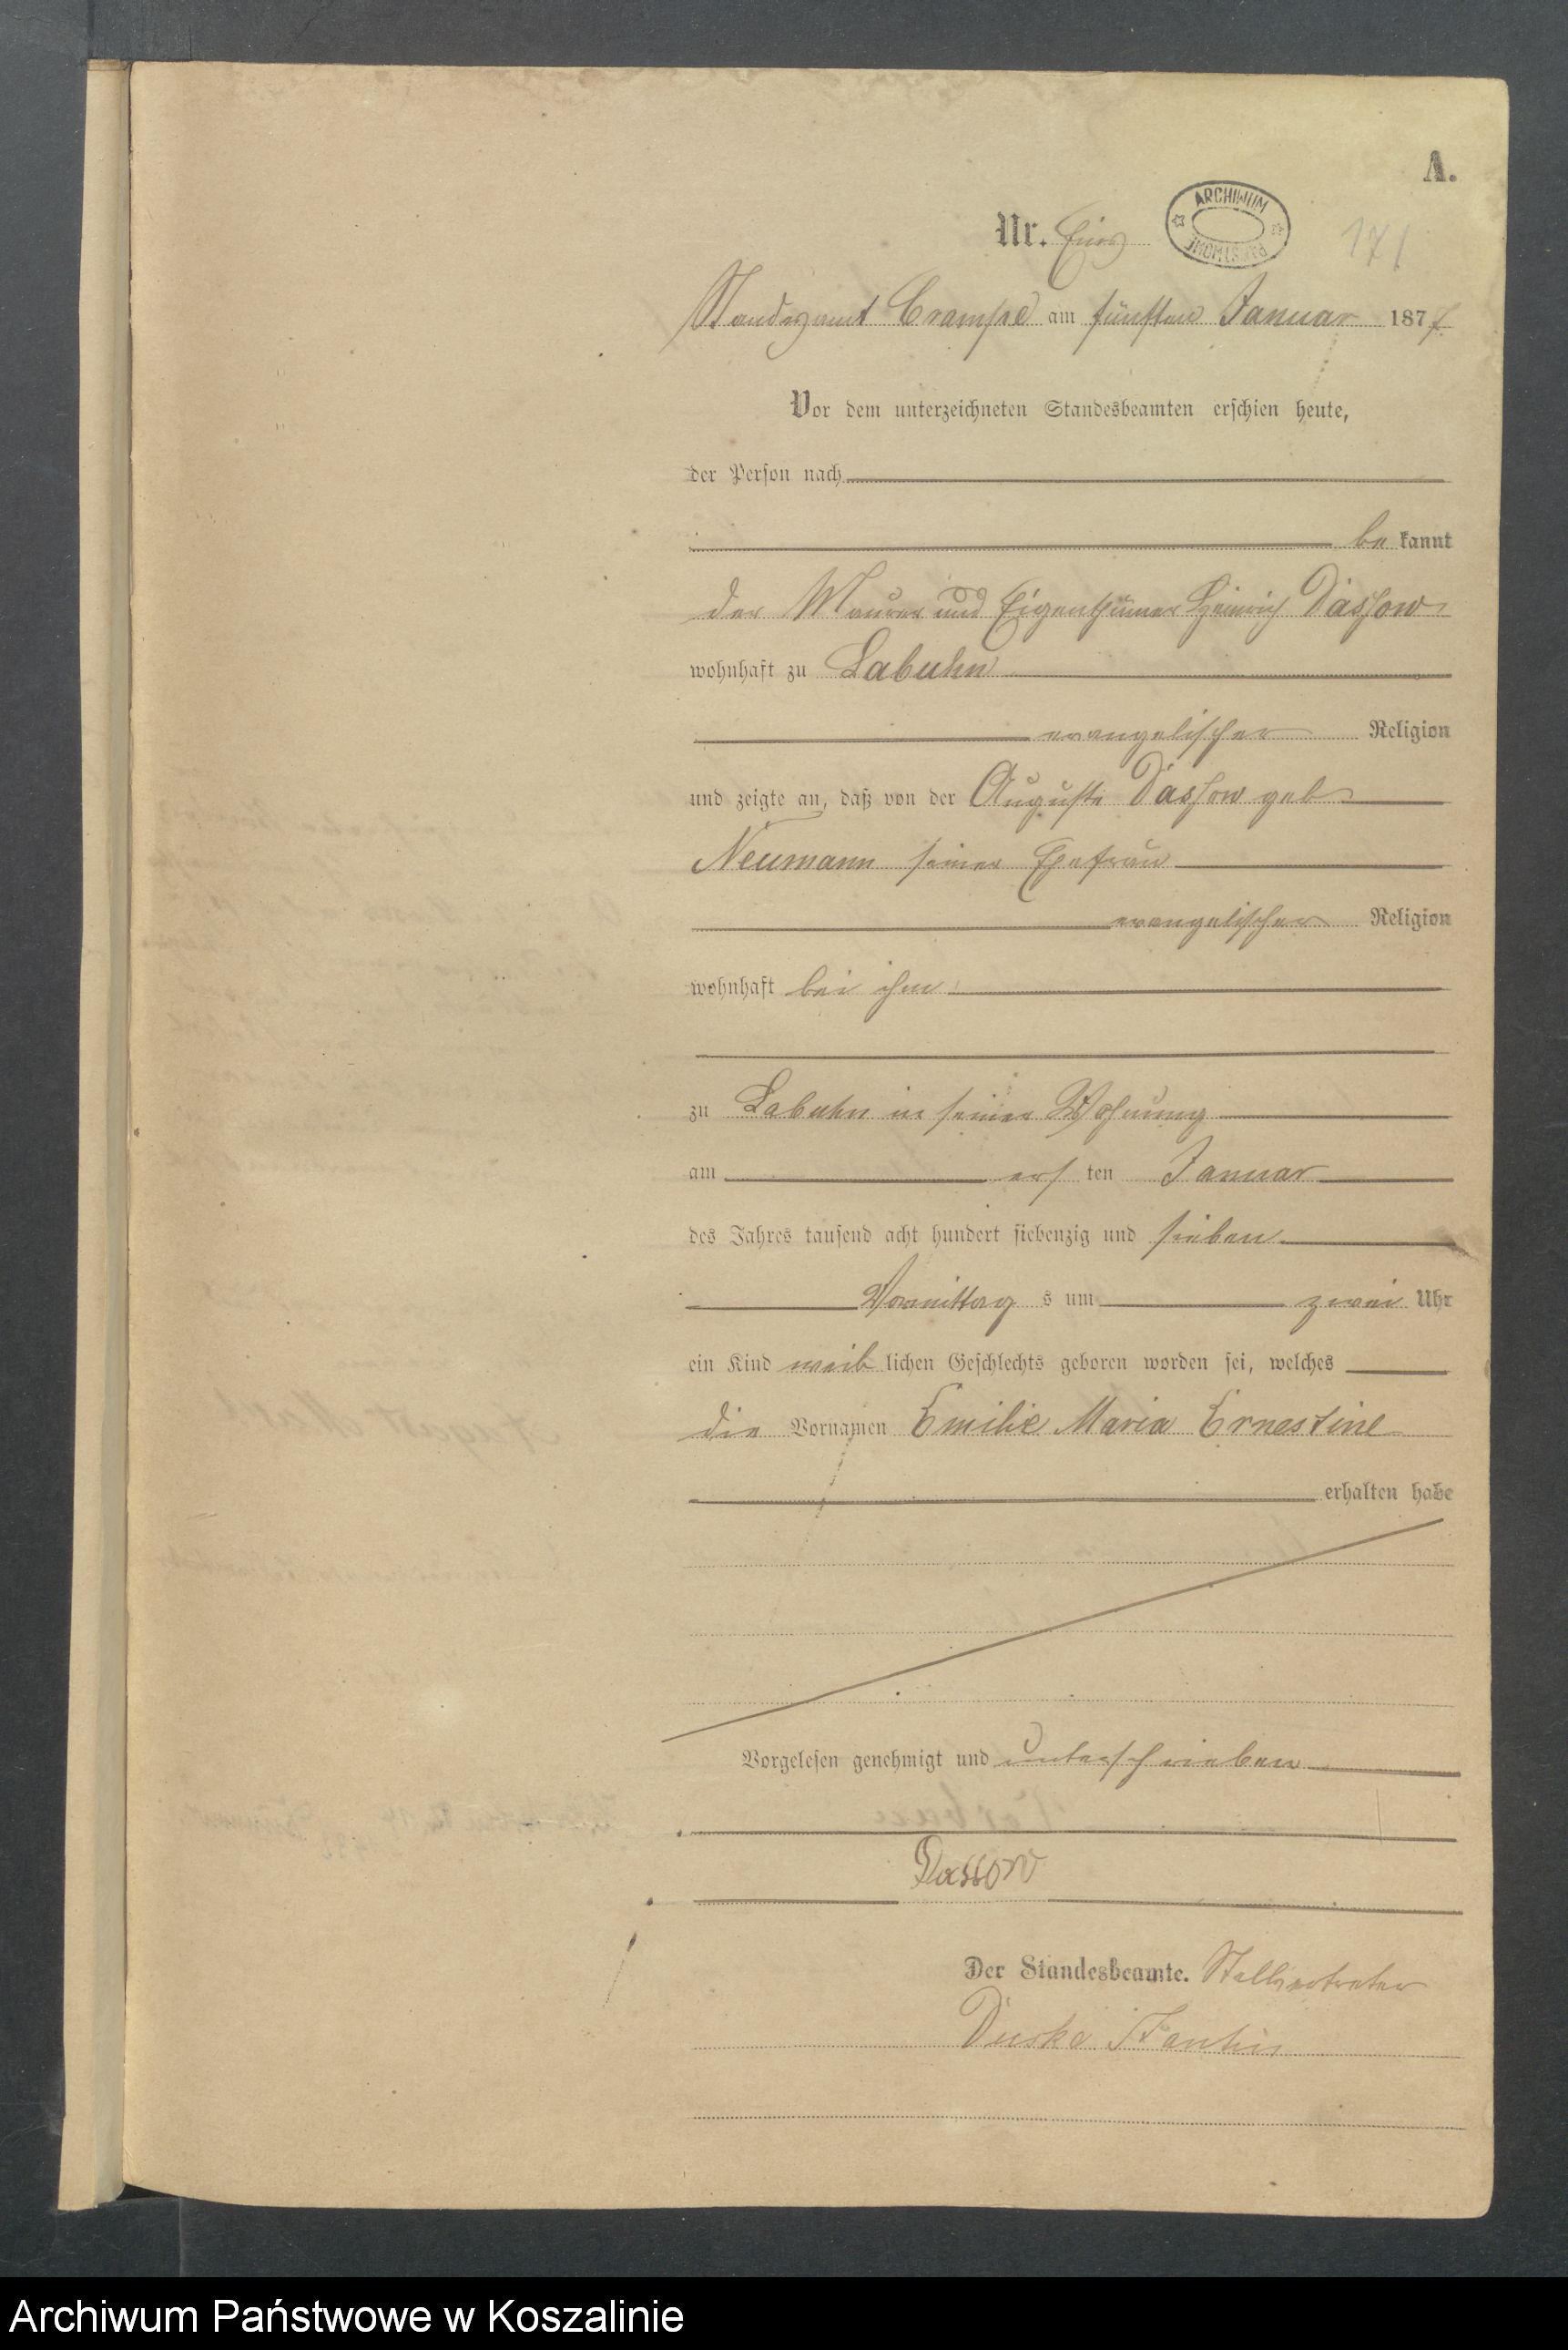 A.
Nr. Eins
ARCHIWUM PAŃSTWOWE
171
Standesamt Crampe am fünften Januar 1877
Vor dem unterzeichneten Standesbeamten erschien heute,
der Person nach
be kannt
der Maurer und Eigenthümer Heinrich Dassow
wohnhaft zu Labuhn
evangelischer Religion
und zeigte an, daß von der Auguste Dassow geb
Neumann seiner Ehefrau
evangelischer Religion
wohnhaft bei ihm
zu Labuhn in seiner Wohnung
am ers ten Januar
des Jahres tausend acht hundert siebenzig und sieben
Vormittag s um zwei Uhr
ein Kind weib lichen Geschlechts geboren worden sei, welches
die Vornamen Emilie Maria Ernestine
erhalten habe
Vorgelesen genehmigt und unterschrieben
Dassow
Der Standesbeamte. Stellvertreter
Archiwum Państwowe w Koszalinie